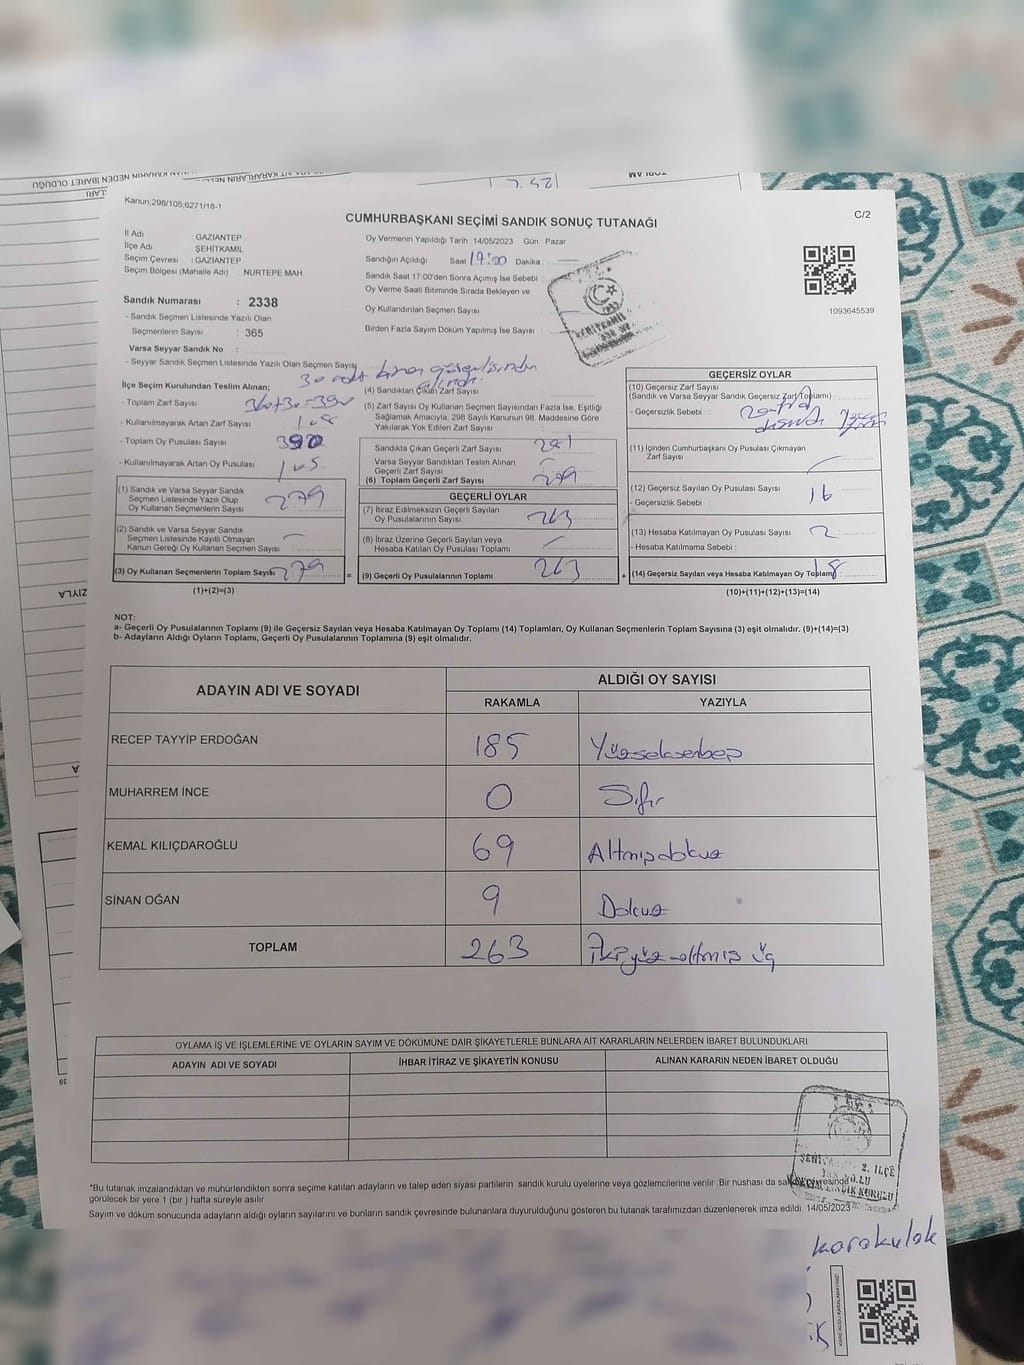 Kanun;298/105,6271/18-1
CUMHURBAŞKANI SEÇİMİ SANDIK SONUÇ TUTANAĞI
C/2
İl Adı : GAZİANTEP
İlçe Adı : ŞEHİTKAMİL
Seçim Çevresi : GAZİANTEP
Seçim Bölgesi (Mahalle Adı) : NURTEPE MAH.
Sandık Numarası : 2338
- Sandık Seçmen Listesinde Yazılı Olan
Seçmenlerin Sayısı : 365
Varsa Seyyar Sandık No :
- Seyyar Sandık Seçmen Listesinde Yazılı Olan Seçmen Sayısı
Oy Vermenin Yapıldığı Tarih : 14/05/2023 Gün : Pazar
Sandığın Açıldığı Saat Dakika :
Sandık Saat 17:00'den Sonra Açımış İse Sebebi :
Oy Verme Saati Bitiminde Sırada Bekleyen ve
Oy Kullandırılan Seçmen Sayısı
Birden Fazla Sayım Döküm Yapılmış İse Sayısı :
1093645539
İlçe Seçim Kurulundan Teslim Alınan;
- Toplam Zarf Sayısı
- Kullanılmayarak Artan Zarf Sayısı
- Toplam Oy Pusulası Sayısı 390
- Kullanılmayarak Artan Oy Pusulası 105
(1) Sandık ve Varsa Seyyar Sandık
Seçmen Listesinde Yazılı Olup
Oy Kullanan Seçmenlerin Sayısı 279
(2) Sandık ve Varsa Seyyar Sandık
Seçmen Listesinde Kayıtlı Olmayan
Kanun Gereği Oy Kullanan Seçmen Sayısı : –
(3) Oy Kullanan Seçmenlerin Toplam Sayısı 279
(1)+(2)=(3)
(4) Sandıktan Çıkan Zarf Sayısı
(5) Zarf Sayısı Oy Kullanan Seçmen Sayısından Fazla İse, Eşitliği
Sağlamak Amacıyla, 298 Sayılı Kanunun 98. Maddesine Göre
Yakılarak Yok Edilen Zarf Sayısı
Sandıkta Çıkan Geçerli Zarf Sayısı
Varsa Seyyar Sandıktan Teslim Alınan
Geçerli Zarf Sayısı
(6) Toplam Geçerli Zarf Sayısı
GEÇERLİ OYLAR
(7) İtiraz Edilmeksizin Geçerli Sayılan
Oy Pusulalarının Sayısı 263
(8) İtiraz Üzerine Geçerli Sayılan veya
Hesaba Katılan Oy Pusulası Toplamı
(9) Geçerli Oy Pusulalarının Toplamı 263
GEÇERSİZ OYLAR
(10) Geçersiz Zarf Sayısı
(Sandık ve Varsa Seyyar Sandık Geçersiz Zarf Toplamı) :
- Geçersizlik Sebebi :
(11) İçinden Cumhurbaşkanı Oy Pusulası Çıkmayan
Zarf Sayısı
(12) Geçersiz Sayılan Oy Pusulası Sayısı 16
- Geçersizlik Sebebi :
(13) Hesaba Katılmayan Oy Pusulası Sayısı 2
- Hesaba Katılmama Sebebi :
(14) Geçersiz Sayılan veya Hesaba Katılmayan Oy Toplamı 18
(10)+(11)+(12)+(13)=(14)
NOT:
a- Geçerli Oy Pusulalarının Toplamı (9) ile Geçersiz Sayılan veya Hesaba Katılmayan Oy Toplamı (14) Toplamları, Oy Kullanan Seçmenlerin Toplam Sayısına (3) eşit olmalıdır. (9)+(14)=(3)
b- Adayların Aldığı Oyların Toplamı, Geçerli Oy Pusulalarının Toplamına (9) eşit olmalıdır.
ADAYIN ADI VE SOYADI
ALDIĞI OY SAYISI
RAKAMLA YAZIYLA
RECEP TAYYİP ERDOĞAN 185 Yüzseksenbeş
MUHARREM İNCE 0 Sıfır
KEMAL KILIÇDAROĞLU 69 Altmışdokuz
SİNAN OĞAN 9 Dokuz
TOPLAM 263 İkiyüz altmış üç
OYLAMA İŞ VE İŞLEMLERİNE VE OYLARIN SAYIM VE DÖKÜMÜNE DAİR ŞİKAYETLERLE BUNLARA AİT KARARLARIN NELERDEN İBARET BULUNDUKLARI
ADAYIN ADI VE SOYADI İHBAR İTİRAZ VE ŞİKAYETİN KONUSU ALINAN KARARIN NEDEN İBARET OLDUĞU
*Bu tutanak imzalandıktan ve mühürlendikten sonra seçime katılan adayların ve talep eden siyasi partilerin sandık kurulu üyelerine veya gözlemcilerine verilir. Bir nüshası da
görülecek bir yere 1 (bir ) hafta süreyle asılır.
Sayım ve döküm sonucunda adayların aldığı oyların sayılarını ve bunların sandık çevresinde bulunanlara duyurulduğunu gösteren bu tutanak tarafımızdan düzenlenerek imza edildi. 14/05/2023
karakulak